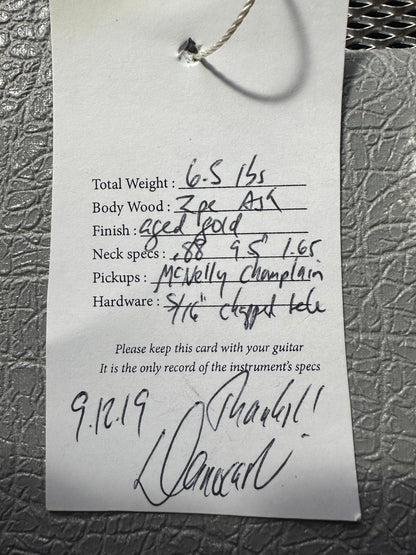 Total Weight : 6.5 lbs
Body Wood : 2pc Ash
Finish : aged gold
Neck specs : .88 9.5" 1.65
Pickups : McNelly Champlain
Hardware : 5/16" chopped tele
Please keep this card with your guitar
It is the only record of the instrument's specs
9.12.19 Thanks!!